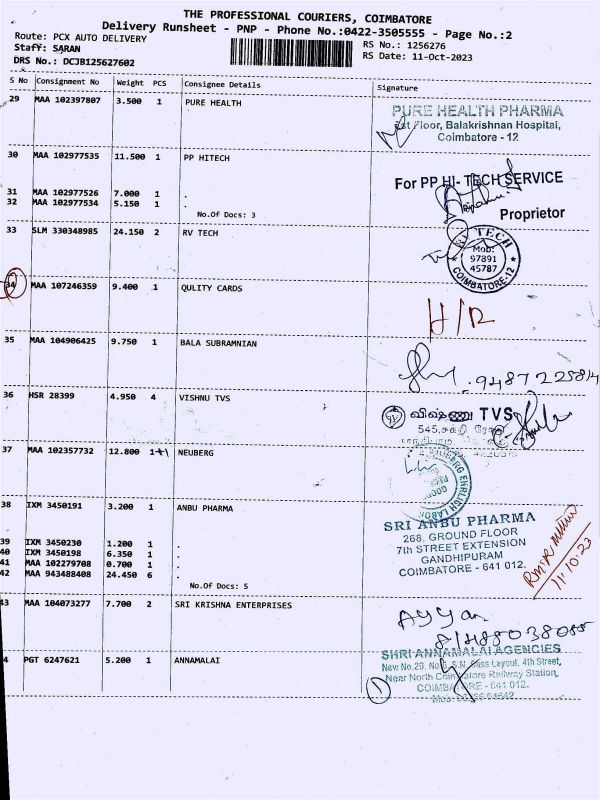 THE PROFESSIONAL COURIERS, COIMBATORE
Delivery Runsheet - PNP - Phone No.:0422-3505555 - Page No.:2
Route: PCX AUTO DELIVERY
RS No.: 1256276
Staff: SARAN
RS Date: 11-Oct-2023
DRS No.: DCJB125627602
S No Consignment No Weight PCS Consignee Details Signature
29 MAA 102397807 3.500 1 PURE HEALTH
PURE HEALTH PHARMA
1st Floor, Balakrishnan Hospital,
Coimbatore - 12
30 MAA 102977535 11.500 1 PP HITECH
For PP HI-TECH SERVICE
31 MAA 102977526 7.000 1 .
32 MAA 102977534 5.150 1 .
No.Of Docs: 3
Proprietor
33 SLM 330348985 24.150 2 RV TECH
RV TECH
Mob:
97891
45787
COIMBATORE-12
34 MAA 107246359 9.400 1 QULITY CARDS
H/R
35 MAA 104906425 9.750 1 BALA SUBRAMNIAN
36 HSR 28399 4.950 4 VISHNU TVS
விஷ்ணு TVS
37 MAA 102357732 12.800 1+1 NEUBERG
38 IXM 3450191 3.200 1 ANBU PHARMA
SRI ANBU PHARMA
268, GROUND FLOOR
7th STREET EXTENSION
GANDHIPURAM
COIMBATORE - 641 012.
39 IXM 3450230 1.200 1 .
40 IXM 3450198 6.350 1 .
41 MAA 102279708 0.700 1 .
42 MAA 943488408 24.450 6 .
No.Of Docs: 5
11.10.23
43 MAA 104073277 7.700 2 SRI KRISHNA ENTERPRISES
Ayyan
8148803808​5
4 PGT 6247621 5.200 1 ANNAMALAI
SHRI ANNAMALAI AGENCIES
Near North Coimbatore Railway Station,
COIMBATORE - 641 012.
1